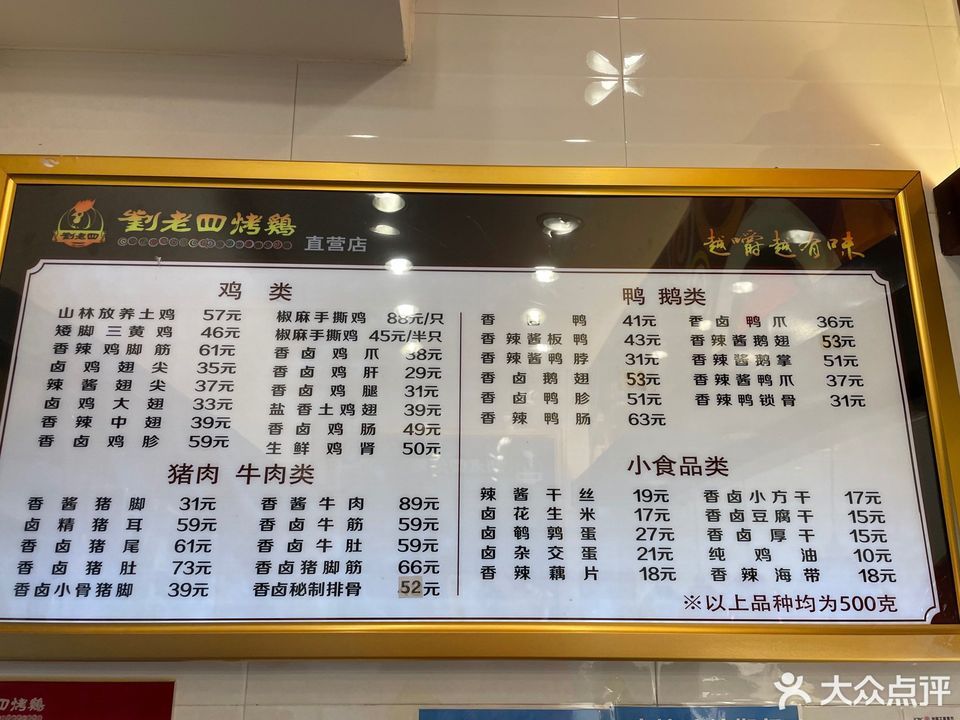 劉老四
劉老四烤鷄
直营店
越嚼越有味
鸡 类
山林放养土鸡 57元
矮脚三黄鸡 46元
香辣鸡脚筋 61元
卤鸡翅尖 35元
辣酱翅尖 37元
卤鸡大翅 33元
香辣中翅 39元
香卤鸡胗 59元
椒麻手撕鸡 88元/只
椒麻手撕鸡 45元/半只
香卤鸡爪 38元
香卤鸡肝 29元
香卤鸡腿 31元
盐香土鸡翅 39元
香卤鸡肠 49元
生鲜鸡肾 50元
鸭 鹅类
香卤鸭 41元
香辣酱板鸭 43元
香辣酱鸭脖 31元
香卤鹅翅 53元
香卤鸭胗 51元
香辣鸭肠 63元
香卤鸭爪 36元
香辣酱鹅翅 53元
香辣酱鹅掌 51元
香辣酱鸭爪 37元
香辣鸭锁骨 31元
猪肉 牛肉类
香酱猪脚 31元
卤精猪耳 59元
香卤猪尾 61元
香卤猪肚 73元
香卤小骨猪脚 39元
香酱牛肉 89元
香卤牛筋 59元
香卤牛肚 59元
香卤猪脚筋 66元
香卤秘制排骨 52元
小食品类
辣酱干丝 19元
卤花生米 17元
卤鹌鹑蛋 27元
卤杂交蛋 21元
香辣藕片 18元
香卤小方干 17元
香卤豆腐干 15元
香卤厚干 15元
纯鸡油 10元
香辣海带 18元
※以上品种均为500克
四烤鷄
大众点评